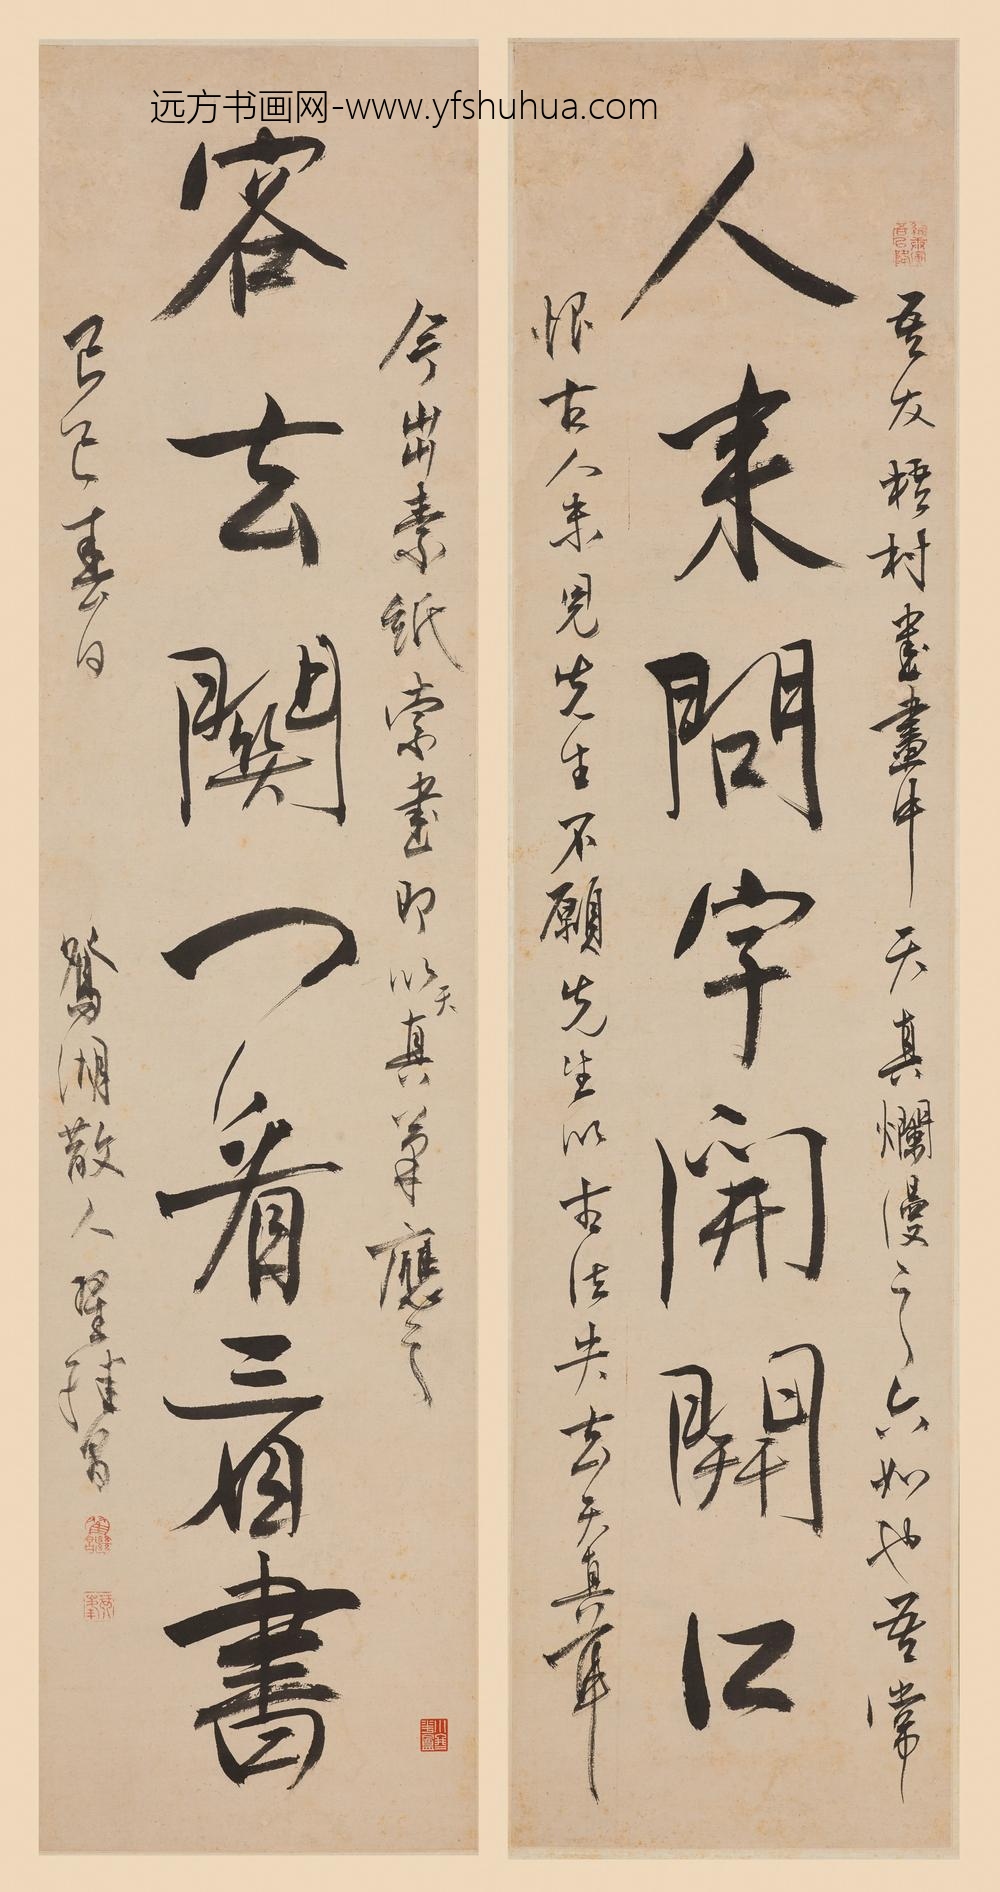 远方书画网-www.yfshuhua.com
吾友梧村書畫中天真爛漫之六如也吾常
人来問字開開口
恨古人未見先生不願先生以古法失去天真
今出素紙索書即以天真筆應之
客去関门看看書
己巳春日 鴛湖散人翟繼昌